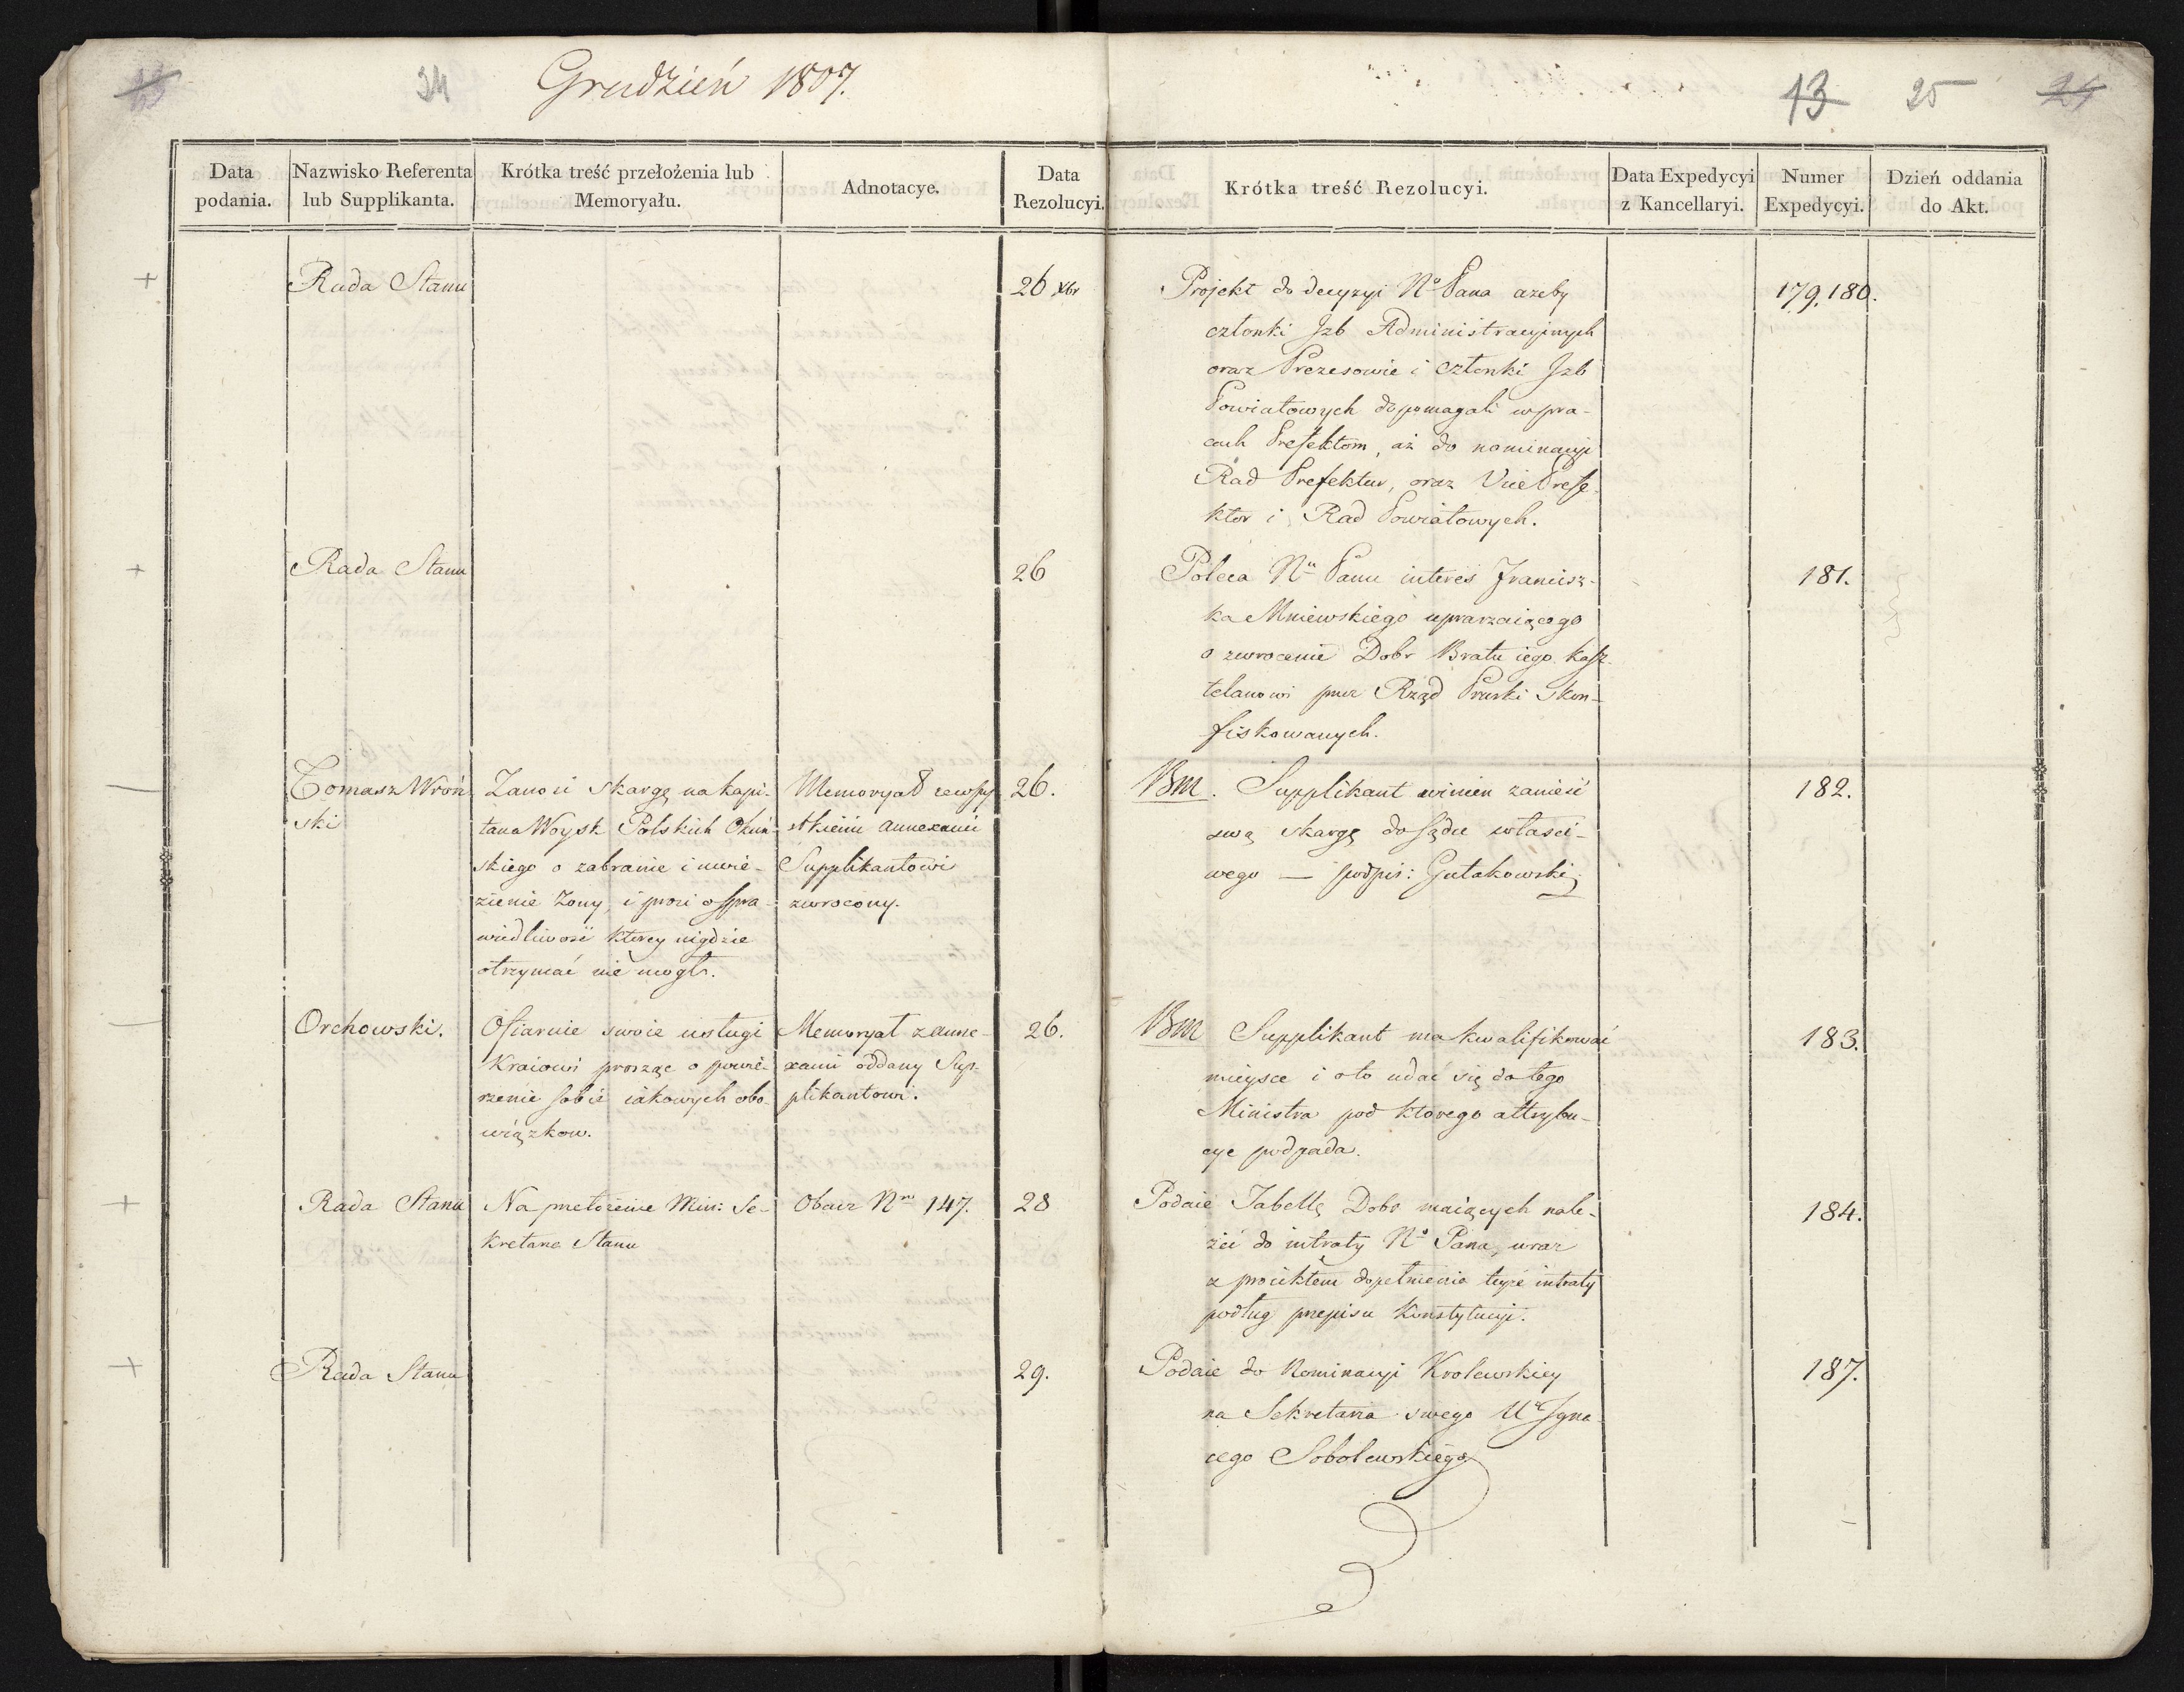 24
Grudzień 1807.
13
25
24
Data podania.
Nazwisko Referenta lub Supplikanta.
Krótka treść przełożenia lub Memoryału.
Adnotacye.
Data Rezolucyi.
Krótka treść Rezolucyi.
Data Expedycyi z Kancellaryi.
Numer Expedycyi.
Dzień oddania do Akt.
Rada Stanu
26 Xbr
Projekt do decyzyi No Pana azeby
członki Jzb Administracyjnych
oraz Prezesowie i członki Jzb
Powiatowych dopomagali w pra-
cach Prefektom, aż do nominacyi
Rad Prefektur, oraz Vice Prefe-
ktor i Rad Powiatowych.
179, 180.
Rada Stanu
26
Poleca Nu Panu interes Francisz-
ka Mniewskiego upraszaiącego
o zwrocenie Dobr Bratu iego Kasz-
telanowi przez Rząd Pruski skon-
fiskowanych.
181.
Tomasz Wroń-
ski
Zanosi skargę na kapi-
tana Woysk Polskich Okuń-
skiego o zabranie i uwie-
zienie Zony, i prosi o spra-
wiedliwość ktorey nigdzie
otrzymać nie mogł.
Memoryał zewszy-
stkiemi annexami
Supplikantowi
zwrocony.
26.
Bm. Supplikant winien zanieść
swą skargę do sądu właści-
wego — podpis: Gutakowski
182.
Orchowski.
Ofiaruie swoie usługi
Kraiowi prosząc o powie-
rzenie sobie iakowych obo-
wiązkow.
Memoryał z anne-
xami oddany Sup-
plikantowi.
26.
Bm Supplikant ma kwalifikować
mieysce i oto udać się do tego
Ministra pod ktorego attrybu-
cye podpada.
183.
Rada Stanu
Na przełożenie Min: Se-
kretarza Stanu
Obacz Nm 147.
28
Podaie Tabellę Dobr maiących nale-
żeć do intraty No Pana, wraz
z proiektem dopełnienia teyże intraty
podług przepisu Konstytucyi.
184.
Rada Stanu
29.
Podaie do Nominacyi Krolewskiey
na Sekretarza swego Ur Igna-
cego Sobolewskiego
187.